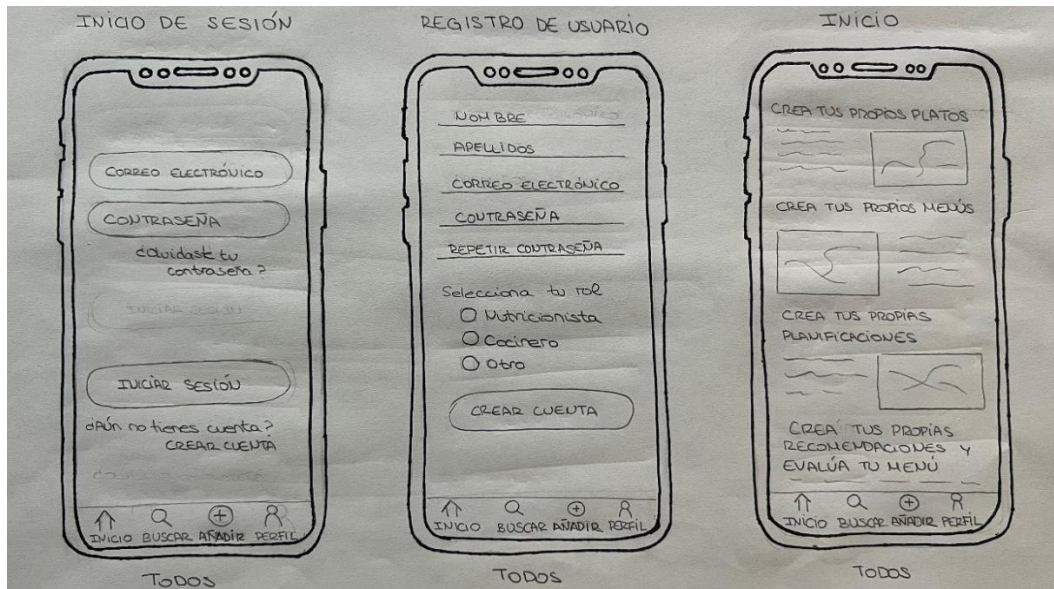 INICIO DE SESIÓN
CORREO ELECTRÓNICO
CONTRASEÑA
¿Olvidaste tu
contraseña?
INICIAR SESIÓN
INICIAR SESIÓN
¿Aún no tienes cuenta?
CREAR CUENTA
INICIO BUSCAR AÑADIR PERFIL
TODOS
REGISTRO DE USUARIO
NOMBRE
APELLIDOS
CORREO ELECTRÓNICO
CONTRASEÑA
REPETIR CONTRASEÑA
Selecciona tu rol
Nutricionista
Cocinero
Otro
CREAR CUENTA
INICIO BUSCAR AÑADIR PERFIL
TODOS
INICIO
CREA TUS PROPIOS PLATOS
CREA TUS PROPIOS MENÚS
CREA TUS PROPIAS
PLANIFICACIONES
CREA TUS PROPIAS
RECOMENDACIONES Y
EVALÚA TU MENÚ
INICIO BUSCAR AÑADIR PERFIL
TODOS